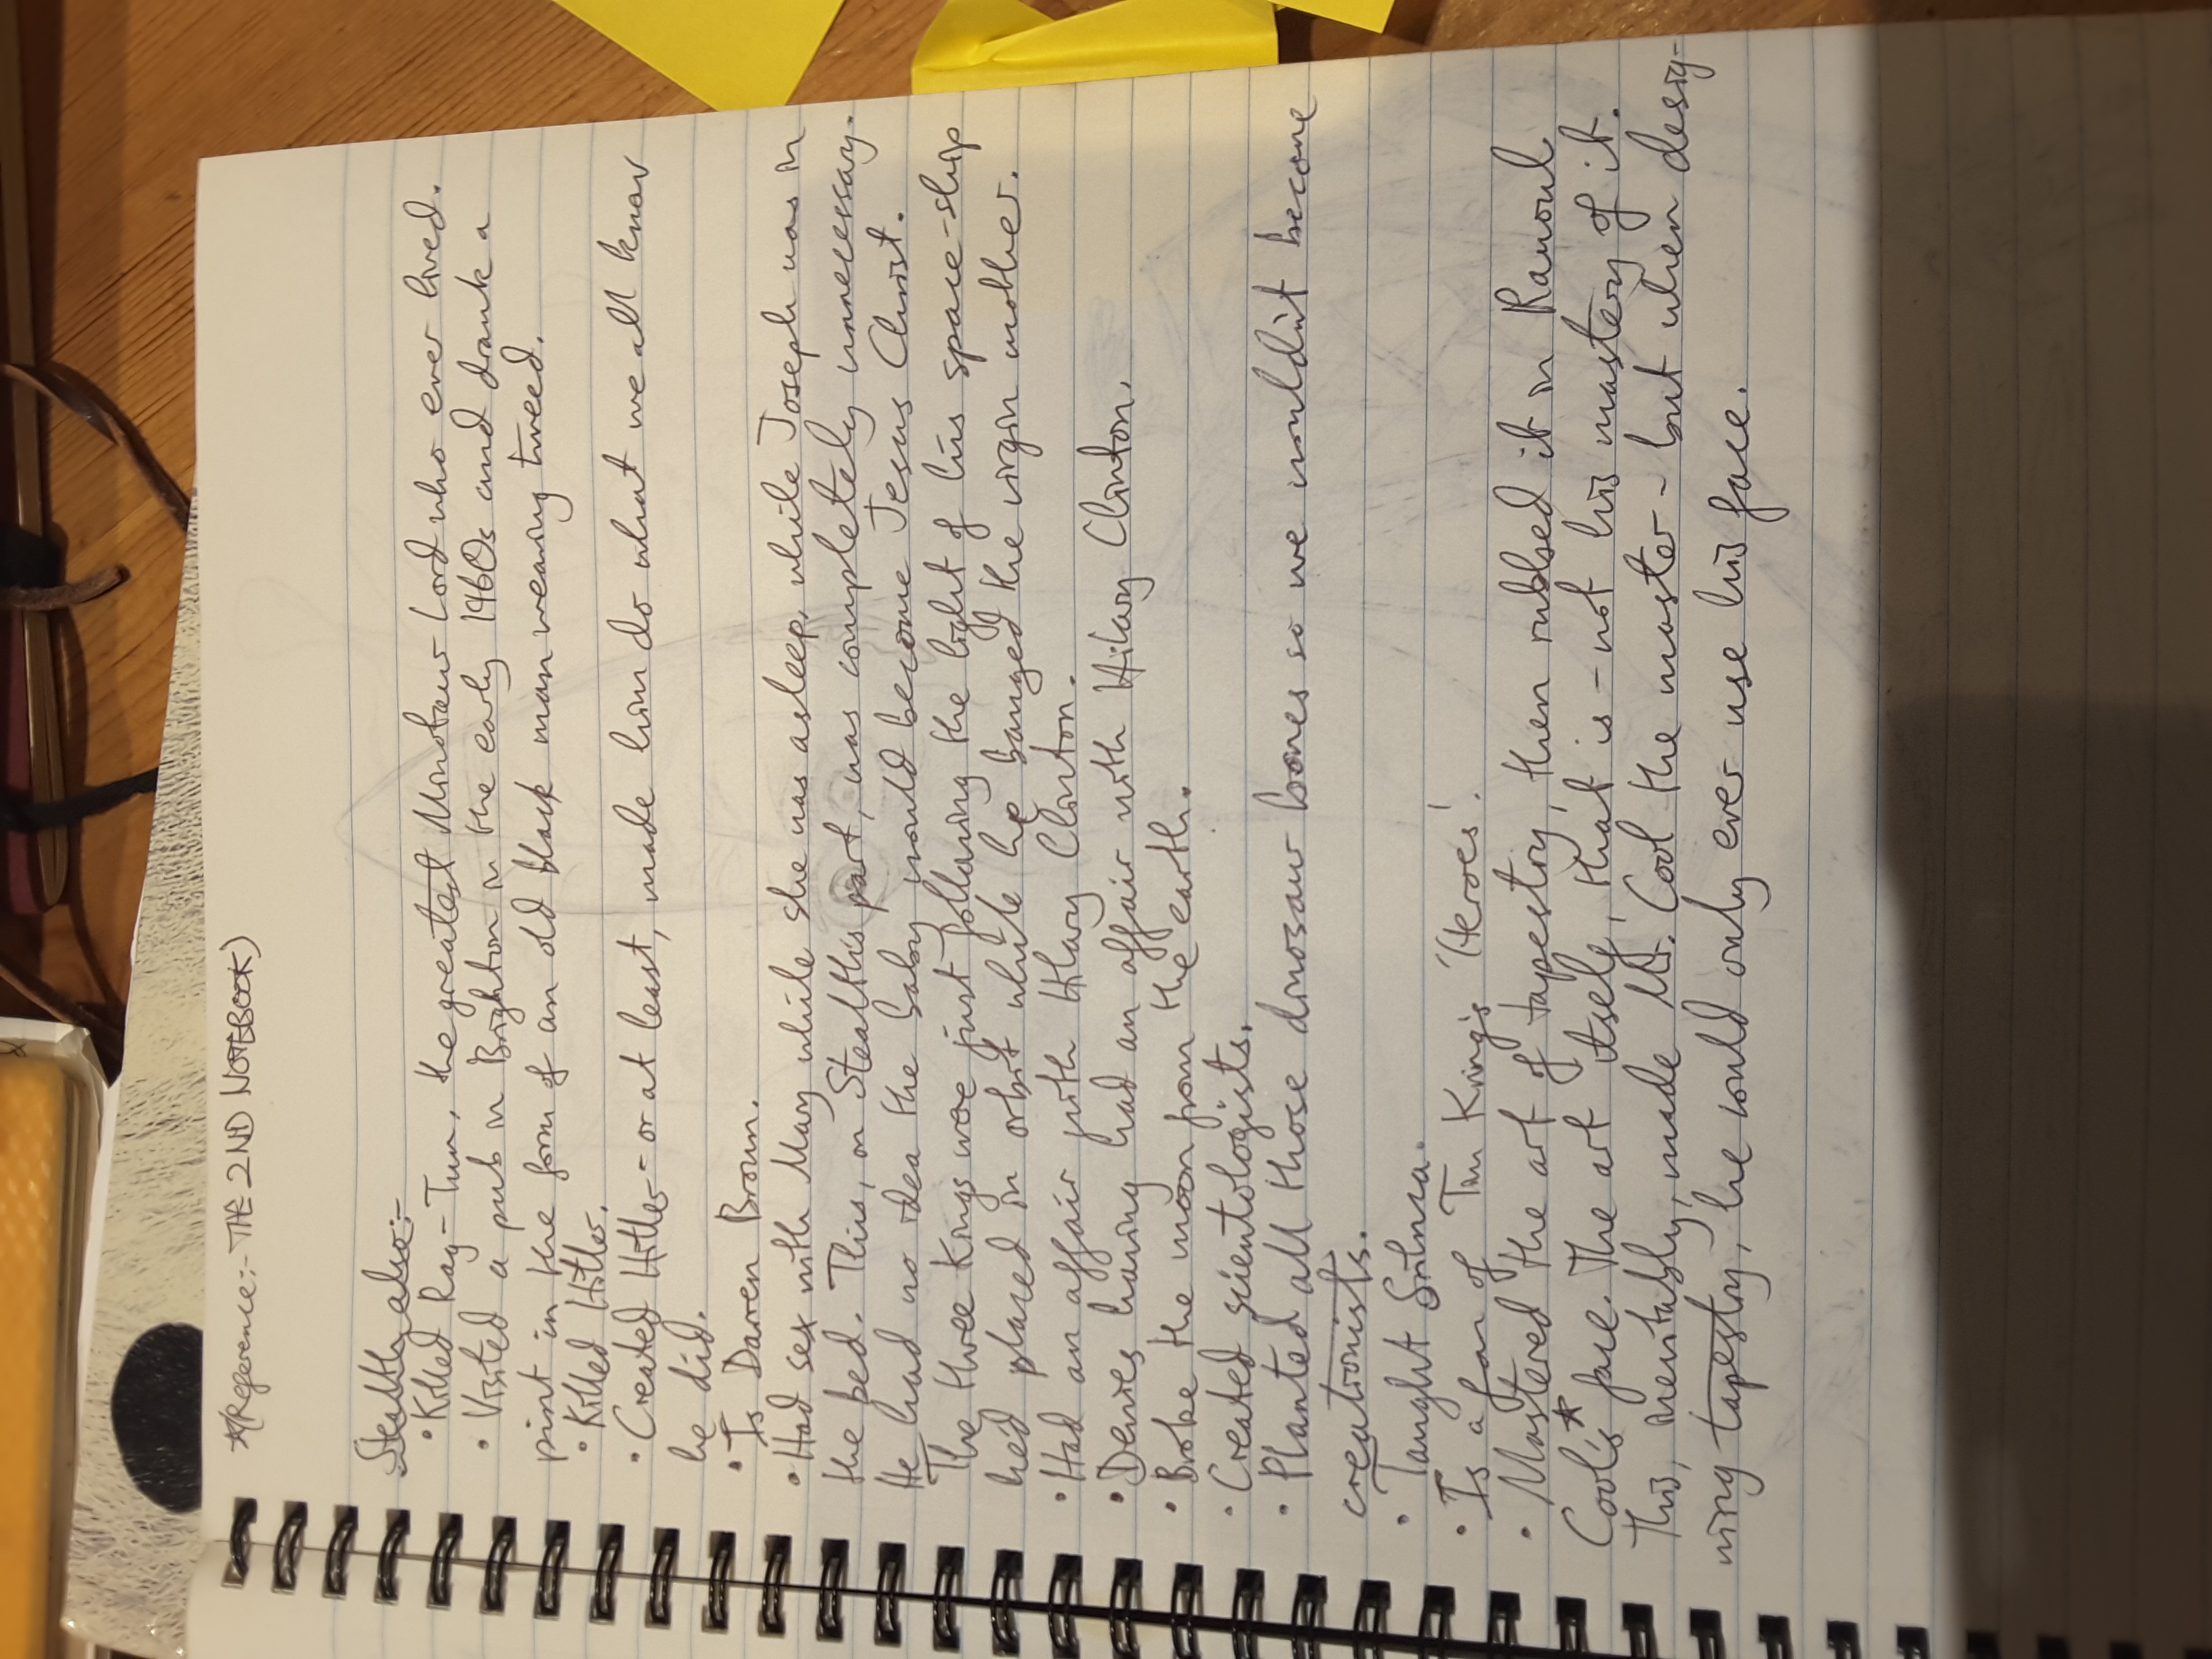 *(Reference:- THE 2ND NOTEBOOK)
Stealth also:-
•Killed Rag-Tun, the greatest Minotaur Lord who ever lived.
• Visited a pub in Brighton in the early 1960s and drank a
pint in the form of an old black man wearing tweed.
•Killed Hitler.
•Created Hitler - or at least, made him do what we all know
he did.
•Is Darren Brown.
•Had sex with Mary while she was asleep, while Joseph was in
the bed. This, on Stealth's part, was completely unnecessary.
He had no idea the baby would become Jesus Christ.
The three Kings were just following the light of his space-ship
he'd placed in orbit while he banged the virgin mother.
•Had an affair with Hilary Clinton.
•Denies having had an affair with Hilary Clinton.
•Broke the moon from the earth.
•Created scientologists.
•Planted all those dinosaur bones so we wouldn't become
creationists.
•Taught
•Is a fan of Tim Kring's 'Heroes'.
•Mastered the art of tapestry, then rubbed it in Ranoul
Cool's* face. The art itself, that is - not his mastery of it.
This, inevitably, made Mr. Cool the master - but when desig-
ning tapestry, he could only ever use his face.